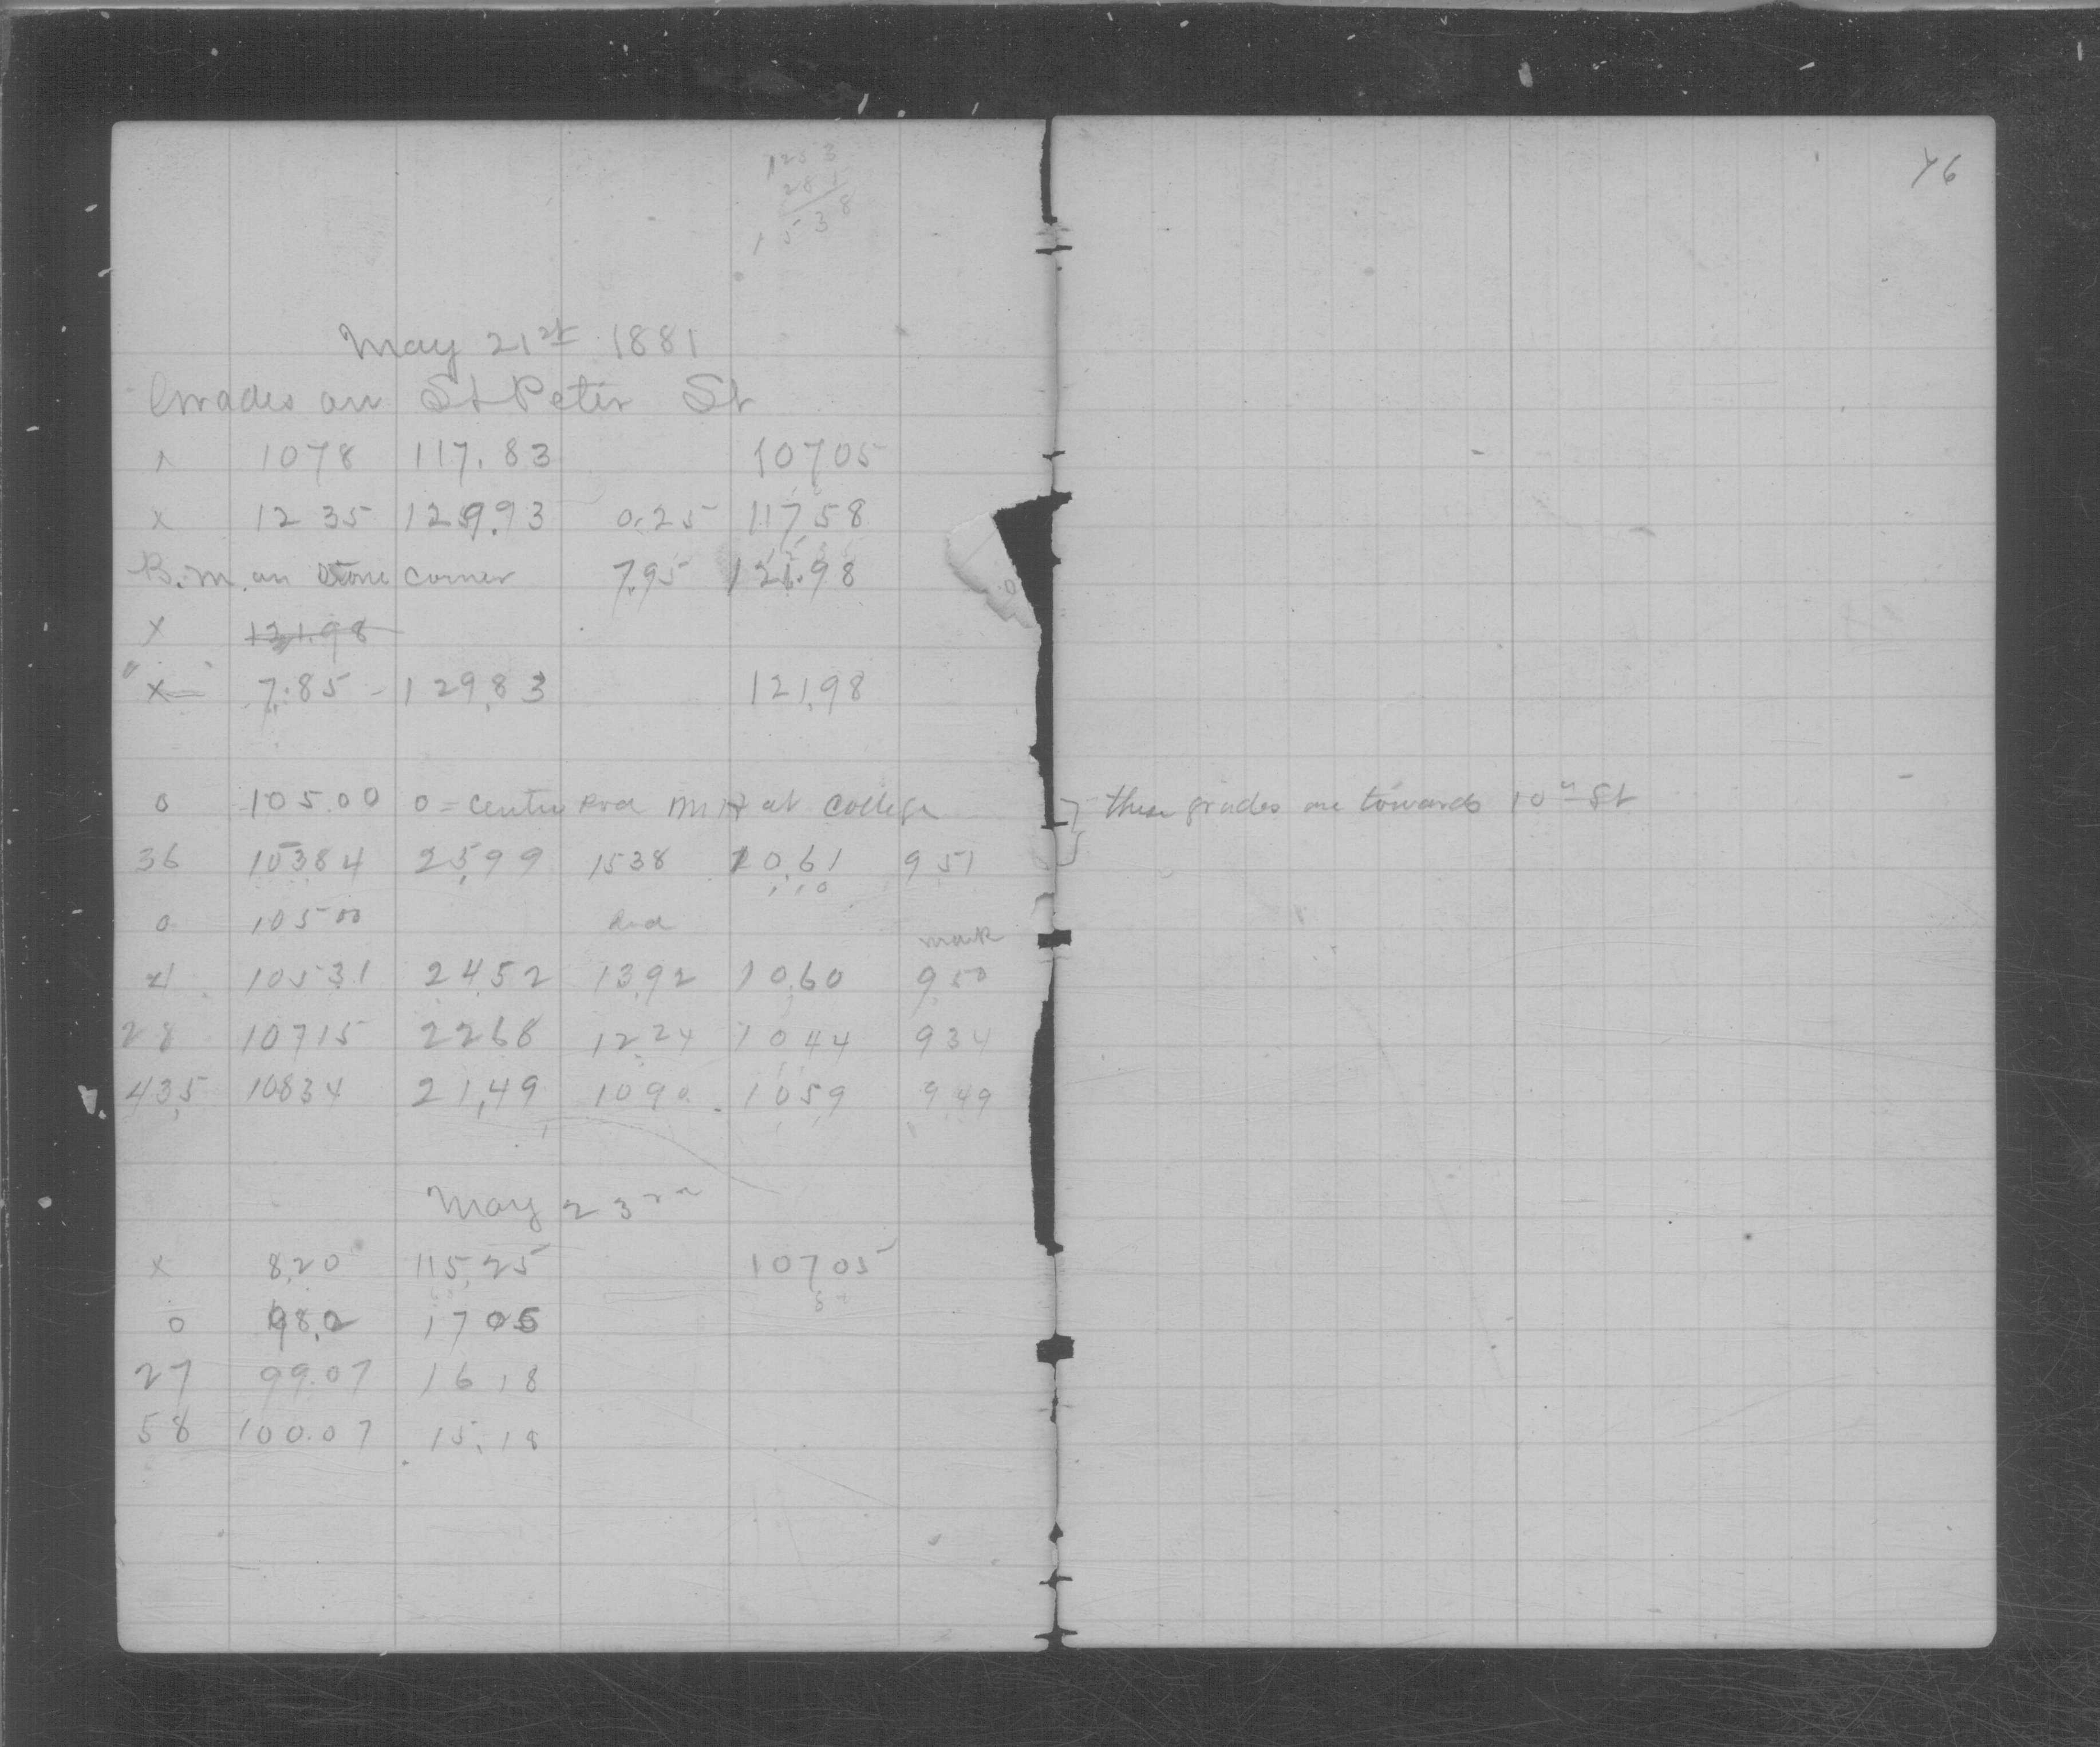 123 3
28 4
1 5 3 8
May 21st 1881
Grades on St Peter St
x 1078 117.83 10705
x 1235 129.93 0.25 11758
B.M. on Stone Corner 7.95 121.98
x 121.98
" x 7.85 - 129.83 121.98
0 105.00 0 = Centre Rod MH at College
36 10384 25,99 1538 10,61 951
0 105 00 Rod mark
4 10531 2452 1392 1060 950
28 10715 2268 1224 1044 934
43,5 10834 21,49 1090 1059 949
May 23rd
x 8,20 115,25 10705
0 98,2 1705
27 99.07 16 18
58 100.07 15.18
76
these grades are towards 10th St